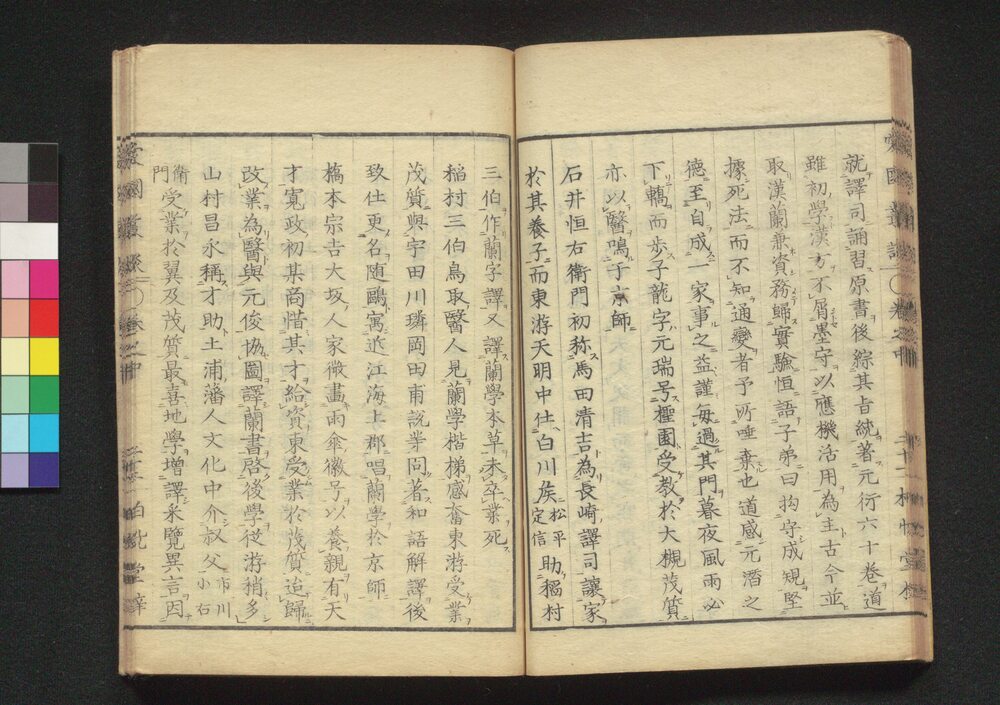 就譯司誦習原書後綜其旨統著元衍六十巻道
雖初學漢方不屑墨守以應機活用為主古今並
取漢蘭兼資務歸實驗恒語子弟曰拘守成規堅
據死法而不知通變者予所唾棄也道感元潛之
德至自成一家事之益謹每過其門暮夜風雨必
下轎而歩子龍字元瑞号櫪園受教於大槻茂質
亦以醫鳴于京師
石井恒右衛門初称馬田清吉為長崎譯司讓家
於其養子而東游天明中仕白川侯松平定信助稲村
三伯作蘭字譯又譯蘭學本草未卒業死
稲村三伯鳥取醫人見蘭學楷梯感奮東游受業
茂質與宇田川璘岡田甫説業問著和語解譯後
致仕更名随鷗寓近江海上郡唱蘭學於京師
橋本宗吉大坂人家微畫雨傘徽号以養親有天
才寛政初某商惜其才給資東受業於茂質迨歸
改業為醫與元俊協圖譯蘭書啓後學従游稍多
山村昌永稱才助土浦藩人文化中介叔父市川小右
衛門受業於翼及茂質最喜地學增譯采覽異言因